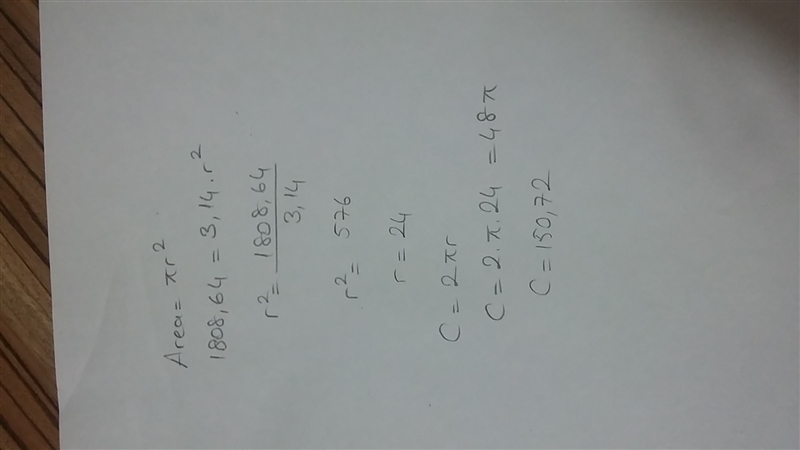 Area = πr²
1808,64 = 3,14.r²
r² = 1808,64 / 3,14
r² = 576
r = 24
C = 2πr
C = 2.π.24 = 48π
C = 150,72